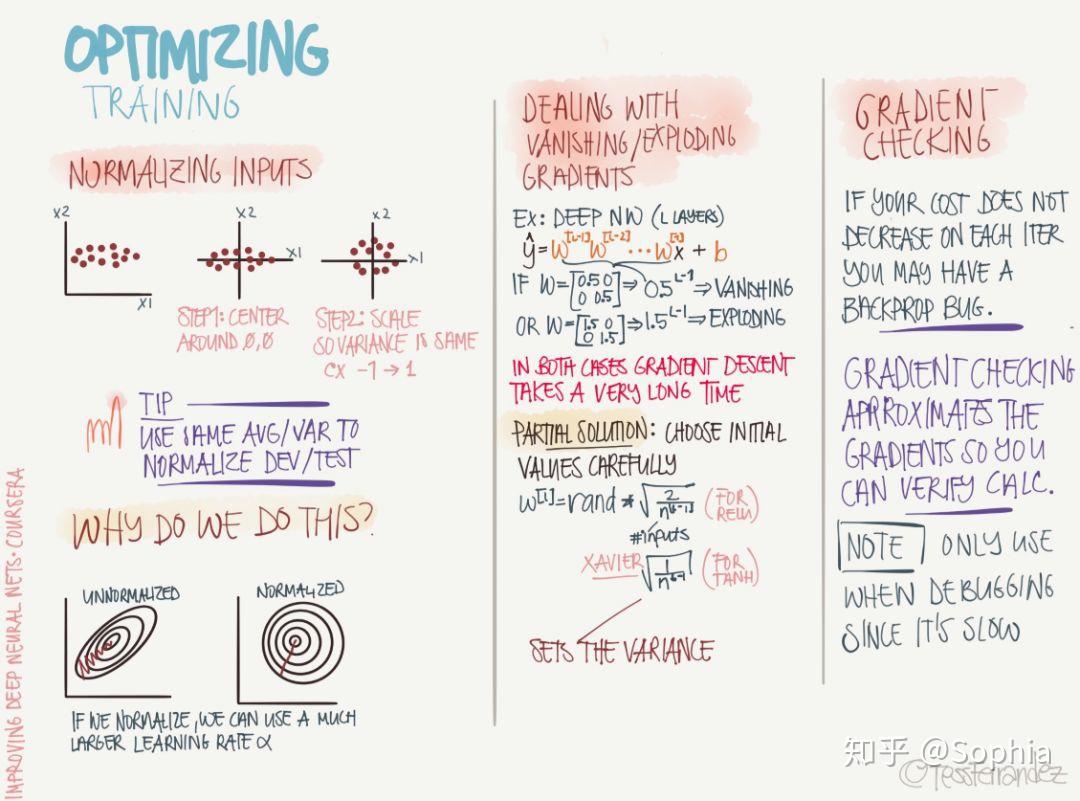 OPTIMIZING
TRAINING
NORMALIZING INPUTS
X2
X1
X2
X1
X2
X1
STEP1: CENTER
AROUND 0,0
STEP2: SCALE
SO VARIANCE IS SAME
EX -1 → 1
TIP
USE SAME AVG/VAR TO
NORMALIZE DEV/TEST
WHY DO WE DO THIS?
UNNORMALIZED
NORMALIZED
IF WE NORMALIZE, WE CAN USE A MUCH
LARGER LEARNING RATE α
IMPROVING DEEP NEURAL NETS · COURSERA
DEALING WITH
VANISHING/EXPLODING
GRADIENTS
EX: DEEP NW (L LAYERS)
ŷ = W[L-1] W[L-2] ... W[1] X + b
IF W = [0.5 0 0 0.5] ⇒ 0.5^L-1 ⇒ VANISHING
OR W = [1.5 0 0 1.5] ⇒ 1.5^L-1 ⇒ EXPLODING
IN BOTH CASES GRADIENT DESCENT
TAKES A VERY LONG TIME
PARTIAL SOLUTION: CHOOSE INITIAL
VALUES CAREFULLY
W[l] = rand * √2/n[l-1] (FOR RELU)
#inputs
XAVIER √1/n^l-1 (FOR TANH)
SETS THE VARIANCE
GRADIENT
CHECKING
IF YOUR COST DOES NOT
DECREASE ON EACH ITER
YOU MAY HAVE A
BACKPROP BUG.
GRADIENT CHECKING
APPROXIMATES THE
GRADIENTS SO YOU
CAN VERIFY CALC.
NOTE ONLY USE
WHEN DEBUGGING
SINCE IT'S SLOW
知乎 @Sophia
©TessFerrandez